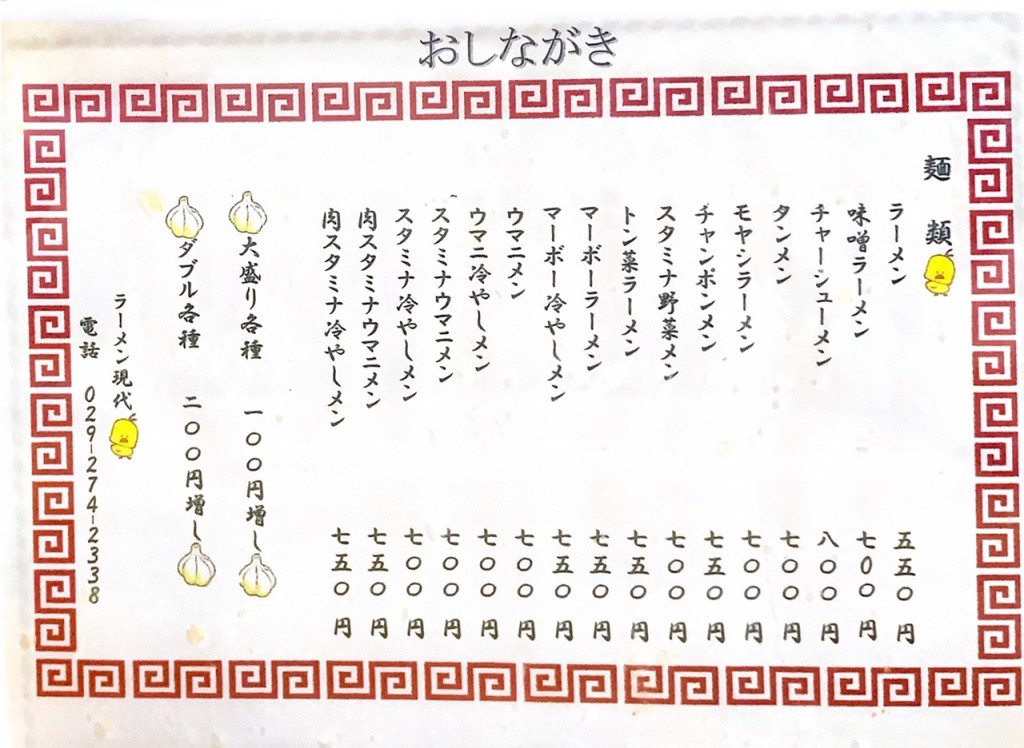 おしながき
麺類
ラーメン 五五〇円
味噌ラーメン 七〇〇円
チャーシューメン 八〇〇円
タンメン 七〇〇円
モヤシラーメン 七〇〇円
チャンポンメン 七五〇円
スタミナ野菜メン 七〇〇円
トン菜ラーメン 七五〇円
マーボーラーメン 七五〇円
マーボー冷やしメン 七五〇円
ウマニメン 七〇〇円
ウマニ冷やしメン 七〇〇円
スタミナウマニメン 七〇〇円
スタミナ冷やしメン 七〇〇円
肉スタミナウマニメン 七五〇円
肉スタミナ冷やしメン 七五〇円
大盛り各種 一〇〇円増し
ダブル各種 二〇〇円増し
ラーメン現代
電話 029-274-2338